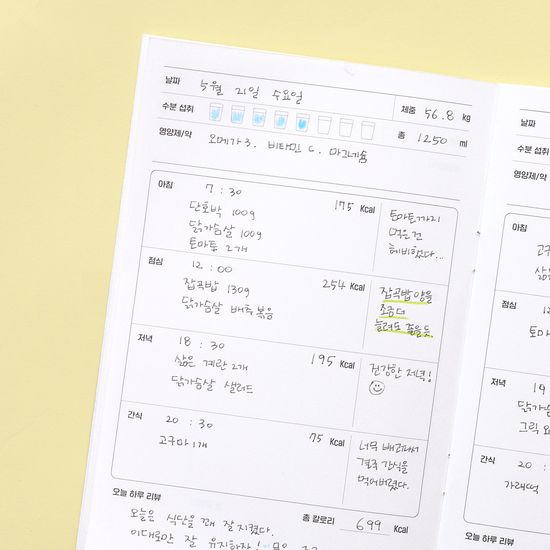 날짜 5월 21일 수요일 체중 56.8 kg
수분 섭취 총 1250 ml
영양제/약 오메가3. 비타민 C. 마그네슘
아침 7 : 30 175 Kcal
단호박 100g
닭가슴살 100g
토마토 2개
토마토까지
먹은 건
헤비했다...
점심 12 : 00 254 Kcal
잡곡밥 130g
닭가슴살 배추 볶음
잡곡밥 양을
조금 더
늘려도 좋을듯.
저녁 18 : 30 195 Kcal
삶은 계란 2개
닭가슴살 샐러드
건강한 저녁!
간식 20 : 30 75 Kcal
고구마 1개
너무 배고파서
결국 간식을
먹어버렸다.
오늘 하루 리뷰 총 칼로리 699 Kcal
오늘은 식단을 꽤 잘 지켰다.
이대로만 잘 유지하자!
날짜
수분 섭취
영양제/약
아침
고구
삶은
점심 12
토마
저녁 19
닭가슴
그릭 요
간식 20 :
가래떡
오늘 하루 리뷰